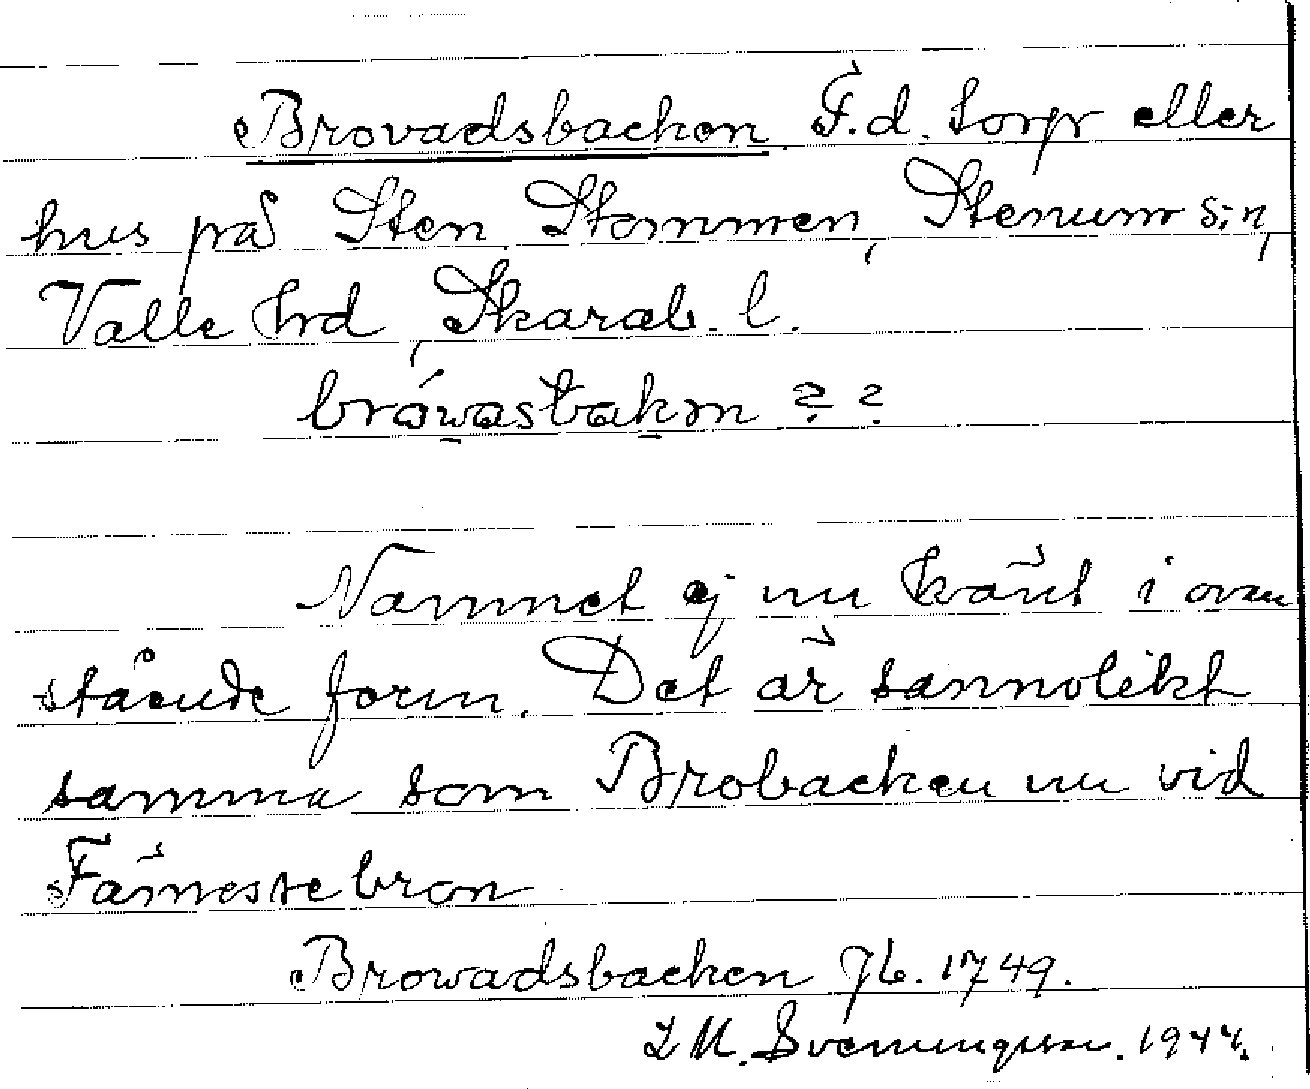 Brovadsbacken F.d. torp eller
hus på Sten Stommen, Stenum sn,
Valle hrd, Skarab. l.
bråwasbakən ? ?
Namnet ej nu känt i ovan
stående form. Det är sannolikt
samma som Brobacken nu vid
Fämestebron
Browadsbacken Jb. 1749.
I M. Svenungsson. 1944.